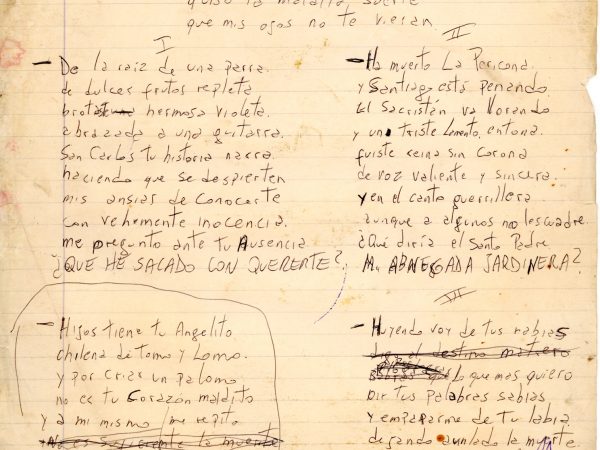 quiso la maldita suerte
que mis ojos no te vieran.
I
- De la raíz de una parra
de dulces frutos repleta
brotaste hermosa violeta.
abrazada a una guitarra.
San Carlos tu historia narra.
haciendo que se despierten
mis ansias de Conocerte
con vehemente inocencia.
me pregunto ante tu Ausencia
¿QUE HE SACADO CON QUERERTE?
- Hijos tiene tu Angelito
chilena de tomo y Lomo.
y por criar un palomo
no es tu Corazón maldito
y a mi mismo me repito
No es suficiente la muerte
II
- Ha muerto La Pericona.
y Santiago está penando.
El Sacristán va llorando
y un triste Lamento, entona.
fuiste reina sin Corona
de voz valiente y sincera.
y en el canto guerrillera
aunque a algunos no les cuadre.
¿Qué diría el Santo Padre
Mi ABNEGADA JARDINERA?
III
- Huyendo voy de tus rabias
el destino matrero
lo que mas quiero
Oir tus Palabras sabias
y empaparme de Tu labia.
dejando aun lado la muerte